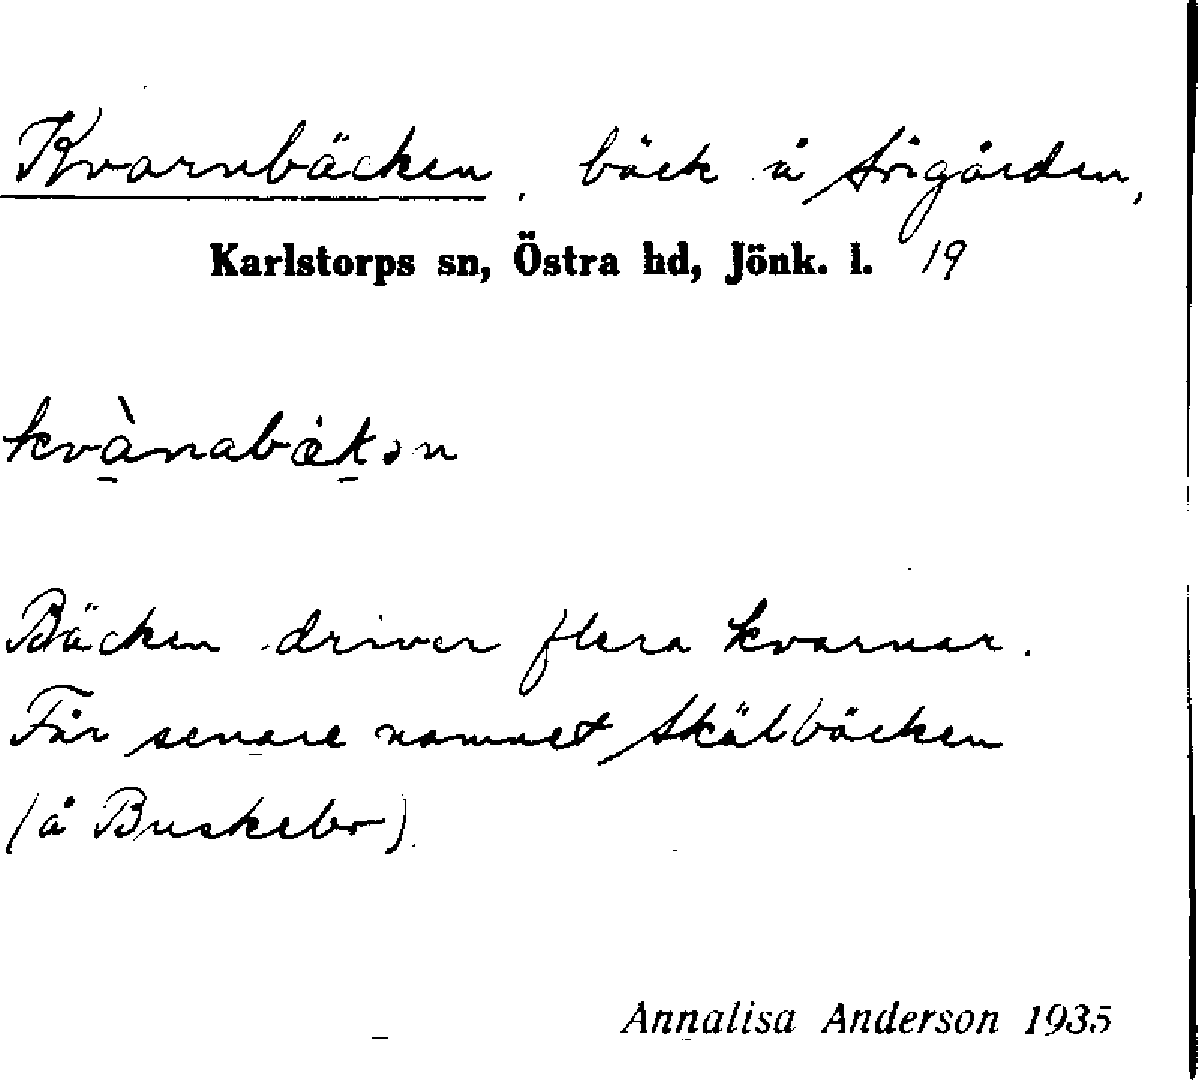 Kvarnbäcken, bäck å Sörgården,
Karlstorps sn, Östra hd, Jönk. l. 19
kvànabǽkən
Bäcken driver flera kvarnar.
Får senare namnet Skälbäcken
(å Buskebo).
Annalisa Anderson 1935